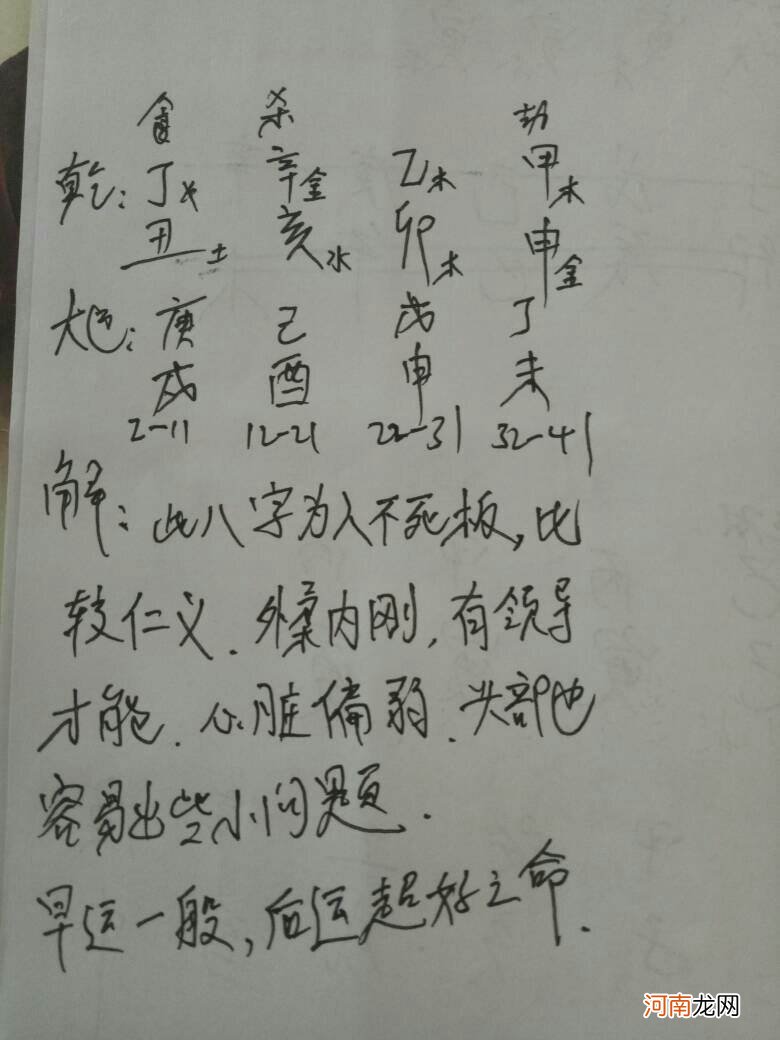 食 杀 劫
乾: 丁火 辛金 乙木 甲木
丑土 亥水 卯木 申金
大运: 庚 己 戊 丁
戌 酉 申 未
2-11 12-21 22-31 32-41
解: 此八字为人不死板, 比
较仁义. 外柔内刚, 有领导
才能. 心脏偏弱. 头部也
容易出些小问题.
早运一般, 后运超好之命.
河南龙网